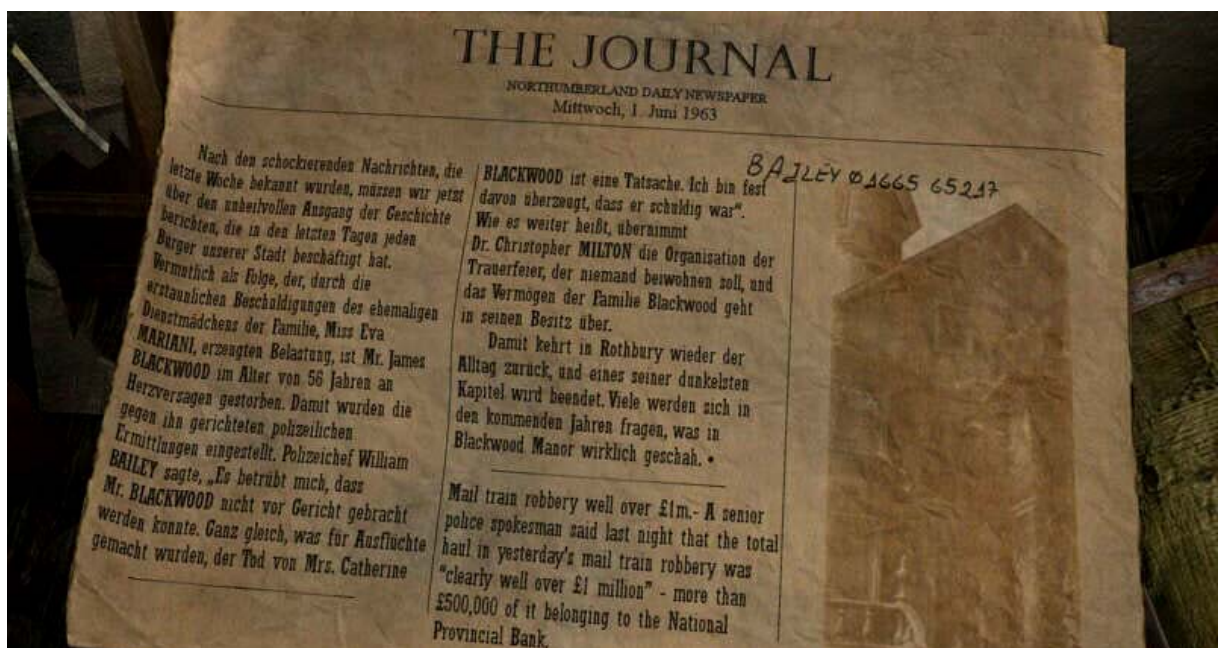 THE JOURNAL
NORTHUMBERLAND DAILY NEWSPAPER
Mittwoch, 1. Juni 1963
BAILEY ø1665 65217
Nach den schockierenden Nachrichten, die
letzte Woche bekannt wurden, müssen wir jetzt
über den unheilvollen Ausgang der Geschichte
berichten, die in den letzten Tagen jeden
Bürger unserer Stadt beschäftigt hat.
Vermutlich als Folge, der, durch die
erstaunlichen Beschuldigungen des ehemaligen
Dienstmädchens der Familie, Miss Eva
MARIANI, erzeugten Belastung, ist Mr. James
BLACKWOOD im Alter von 56 Jahren an
Herzversagen gestorben. Damit wurden die
gegen ihn gerichteten polizeilichen
Ermittlungen eingestellt. Polizeichef William
BAILEY sagte, „Es betrübt mich, dass
Mr. BLACKWOOD nicht vor Gericht gebracht
werden konnte. Ganz gleich, was für Ausflüchte
gemacht wurden, der Tod von Mrs. Catherine
BLACKWOOD ist eine Tatsache. Ich bin fest
davon überzeugt, dass er schuldig war“.
Wie es weiter heißt, übernimmt
Dr. Christopher MILTON die Organisation der
Trauerfeier, der niemand beiwohnen soll, und
das Vermögen der Familie Blackwood geht
in seinen Besitz über.
Damit kehrt in Rothbury wieder der
Alltag zurück, und eines seiner dunkelsten
Kapitel wird beendet. Viele werden sich in
den kommenden Jahren fragen, was in
Blackwood Manor wirklich geschah. •
Mail train robbery well over £1m.- A senior
police spokesman said last night that the total
haul in yesterday's mail train robbery was
"clearly well over £1 million" - more than
£500,000 of it belonging to the National
Provincial Bank.